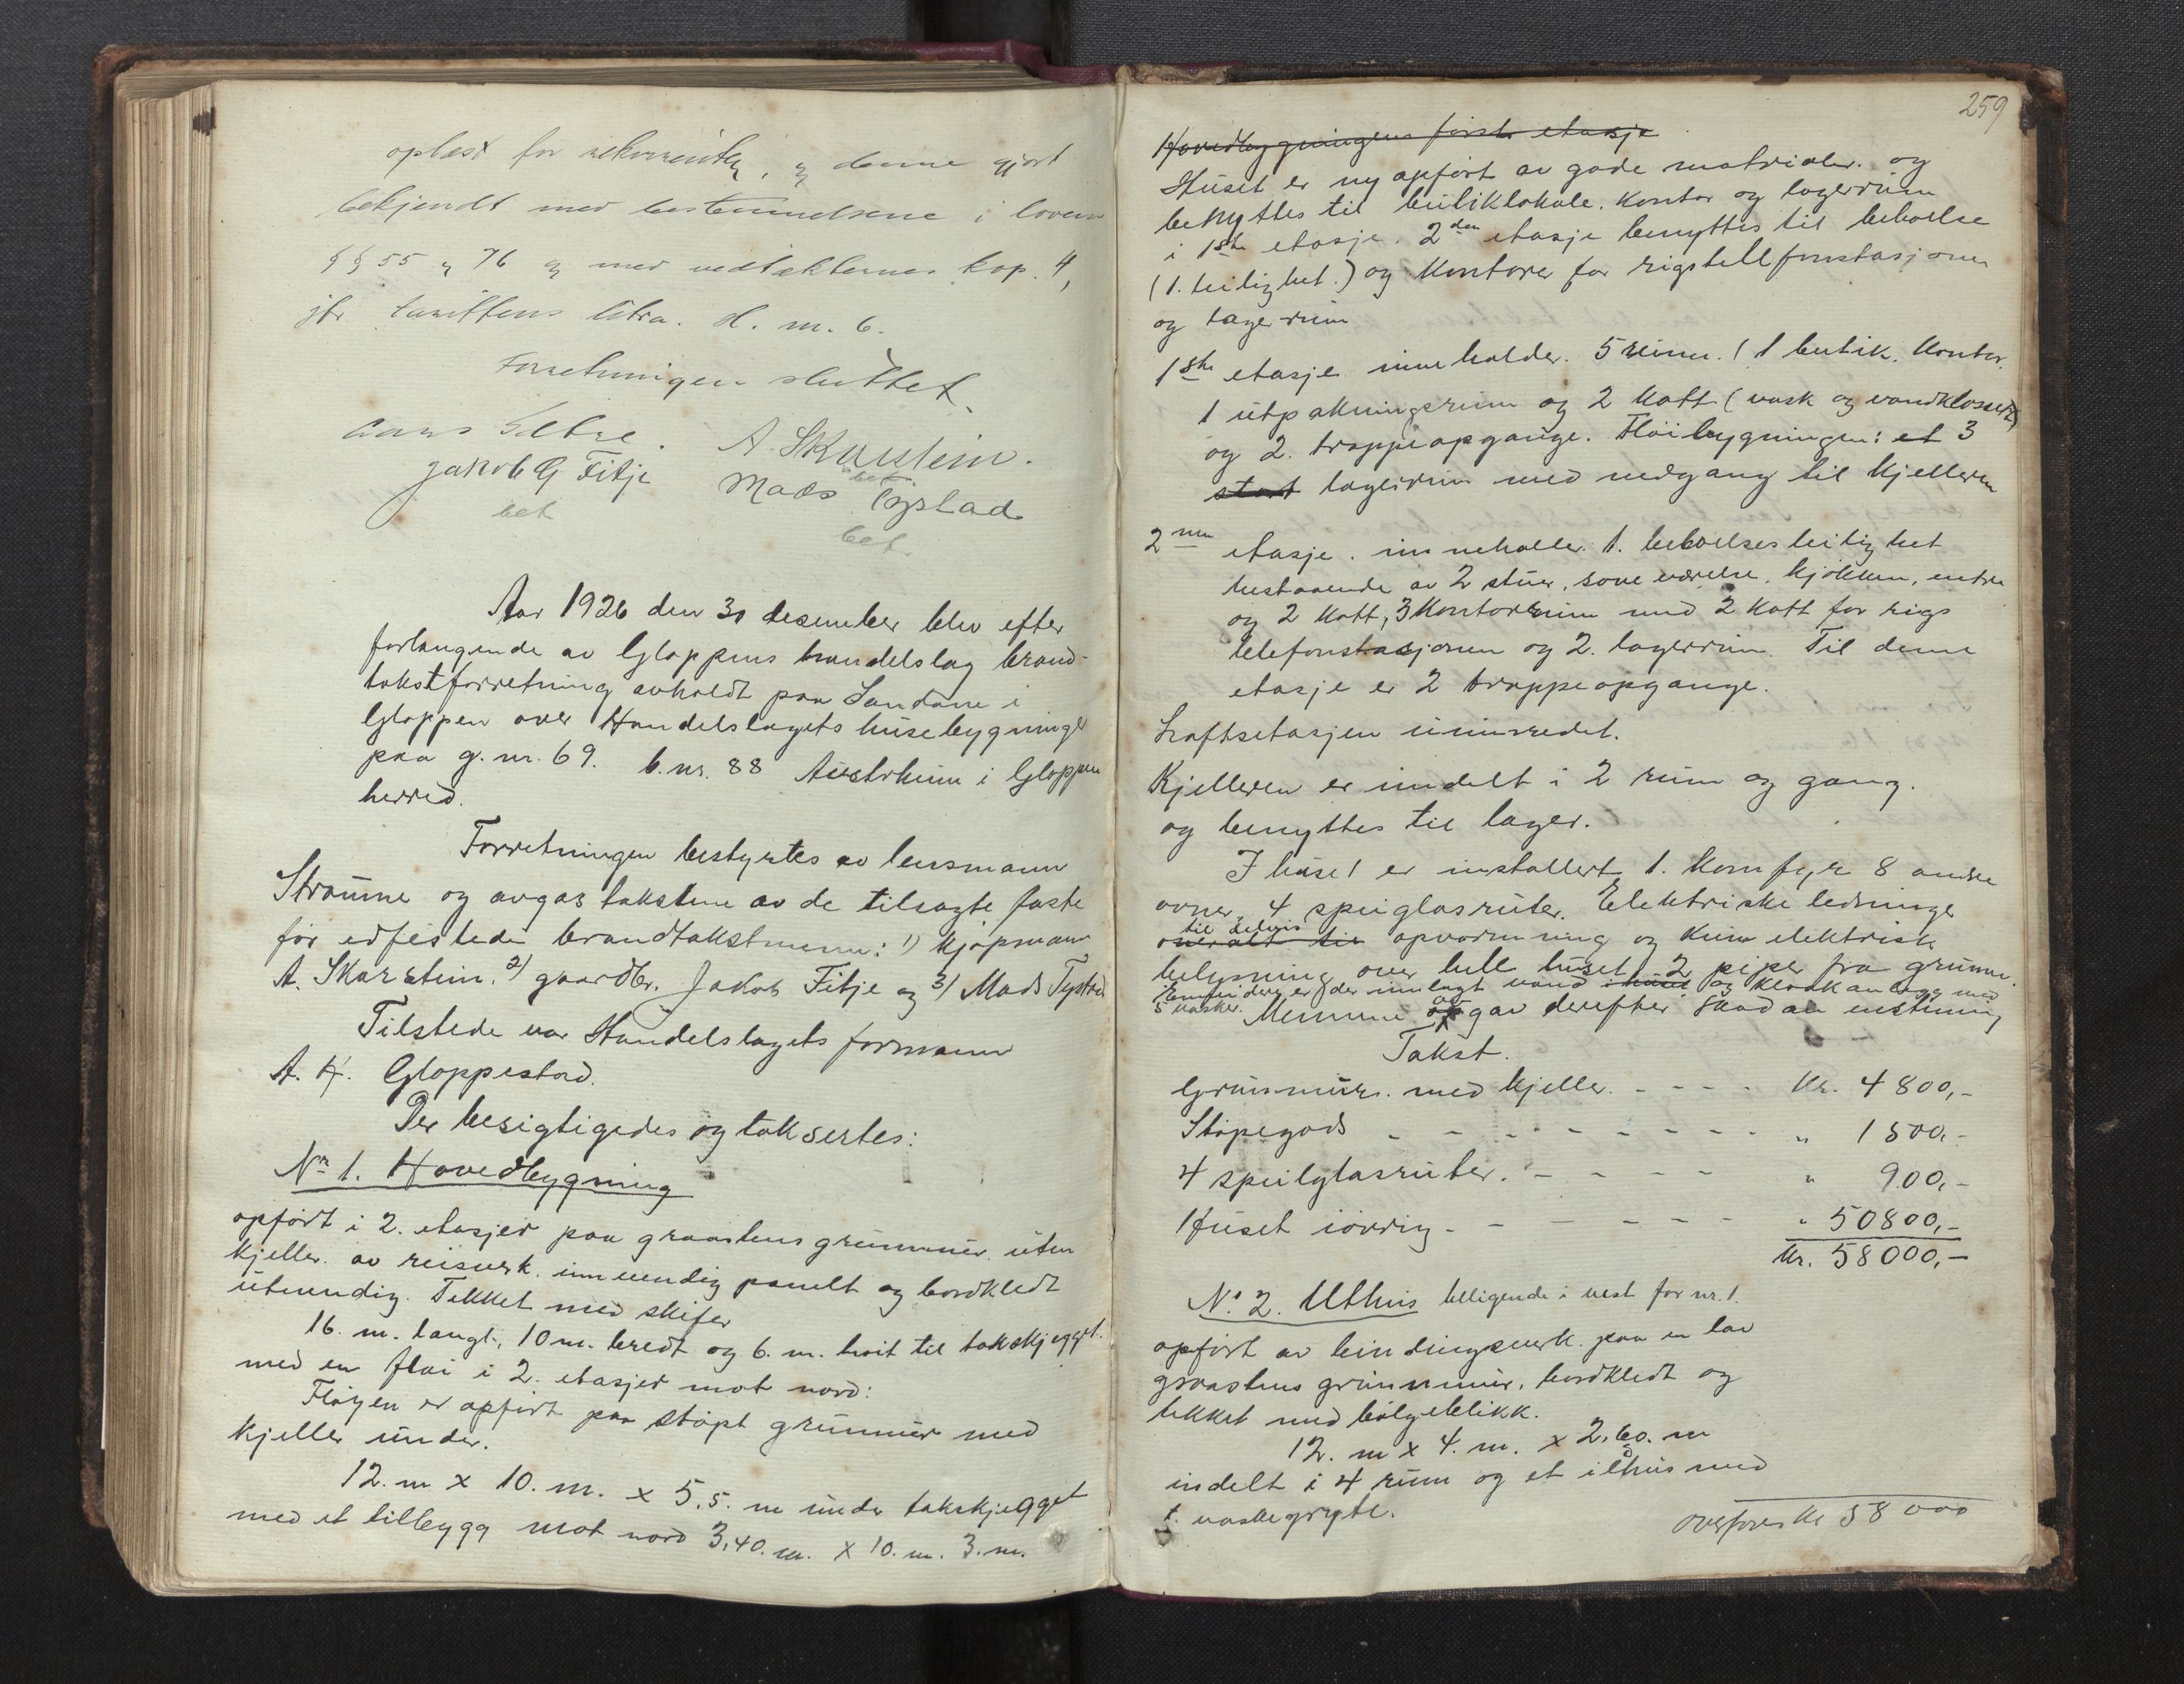 oplæst for rekvirenten, og denne gjort
bekjendt med bestemmelsene i loven
§ § 55 og 76 og med vedtækternes kap. 4,
jfr tariffens litra. H. m. 6.
Forretningen sluttet.
Hans Sætre. A. Skarstein.
bet
Jakob G Fitje Mads Tystad
bet bet.
Aar 1926 den 30 desember blev efter
forlangende av Gloppens handelslag brand-
takstforretning avholdt paa Sandane i
Gloppen over Handelslagets husebygninger
paa g. nr. 69. b. nr. 88 Austrheim i Gloppen
herred.
Forretningen bestyrtes av lensmann
Strømme og avgas taksten av de tilsagte faste
før edfestede brandtakstmenn: 1) Kjøpmann
A. Skarstein. 2) gaardbr. Jakob Fitje og 3) Mads Tystad
Tilstede var Handelslagets formann
A. K. Gloppestad.
Der besigtigedes og taksertes:
No 1. Hovedbygning
opført i 2. etasjer paa graastens grunnmur uten
kjeller. av reisverk. innvendig panelt og bordkledt
utvendig. Tekket med skifer
16. m. langt, 10 m. bredt og 6. m. høit til takskjegget.
med en fløi i 2. etasjer mot nord:
Fløyen er opført paa støpt grunnmur med
kjeller under.
12. m x 10. m. x 5,5. m under takskjegget
med et tilbygg mot nord 3,40. m. x 10. m. 3. m.
259
Hovedbygningens første etasje
Huset er ny opført av gode matrialer. og
benyttes til butiklokale. Kontor og lagerrum
i 1ste etasje. 2den etasje benyttes til beboelse
(1. leilighet.) og Kontorer for rigstellefonstasjonen
og lagerrum
1ste etasje inneholder. 5 rum. (1 butik. Kontor.
1 utpakningsrum og 2 Kott (vask og vandklosset)
og 2. trappeopgange. Fløibygningen: et 3
stort lagerrum med nedgang til Kjelleren
2nen etasje. inneholder. 1. beboelsesleilighet
bestaaende av 2 stuer, soveværelse, kjøkken, entre
og 2 Kott, 3 Kontorrum med 2 Kott for rigs
telefonstasjonen og 2. lagerrum. Til denne
etasje er 2 trappeopgange.
Loftsetasjen uinnredet.
Kjelleren er inndelt i 2 rum og gang.
og benyttes til lager.
I huset er installert 1. Komfyr 8 andre
ovner, 4 speilglasruter. Elektriske ledninger
til delvis
overalt til opvarmning og kun elektrisk
belysning over hele huset 2 piper fra grunnen.
Femfeiderer er der innlagt vand i huset og kloakanlegg med
5 vasker. Mennene avgav derefter saadan enstemmig
Takst.
Grunnmur. med kjeller. - - - - Kr. 4800,-
Støpegods - - - - - - - - - " 1500,-
4 speilglasruter. - - - - " 900,-
Huset iøvrig - - - - - - " 50800,-
Kr. 58000,-
No 2. Uthus beliggende i vest for nr. 1.
opført av bindingsverk. paa en lav
graastens grunnmur, bordkledt og
tekket med bølgeblikk.
12. m x 4. m. x 2,60. m
indelt i 4 rum og et ildhus med
1. vaskegryte.
overføres kr 58 000